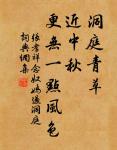 洞庭青草
近中秋
更無一點風色
張孝祥念奴嬌過洞庭
詞典網集